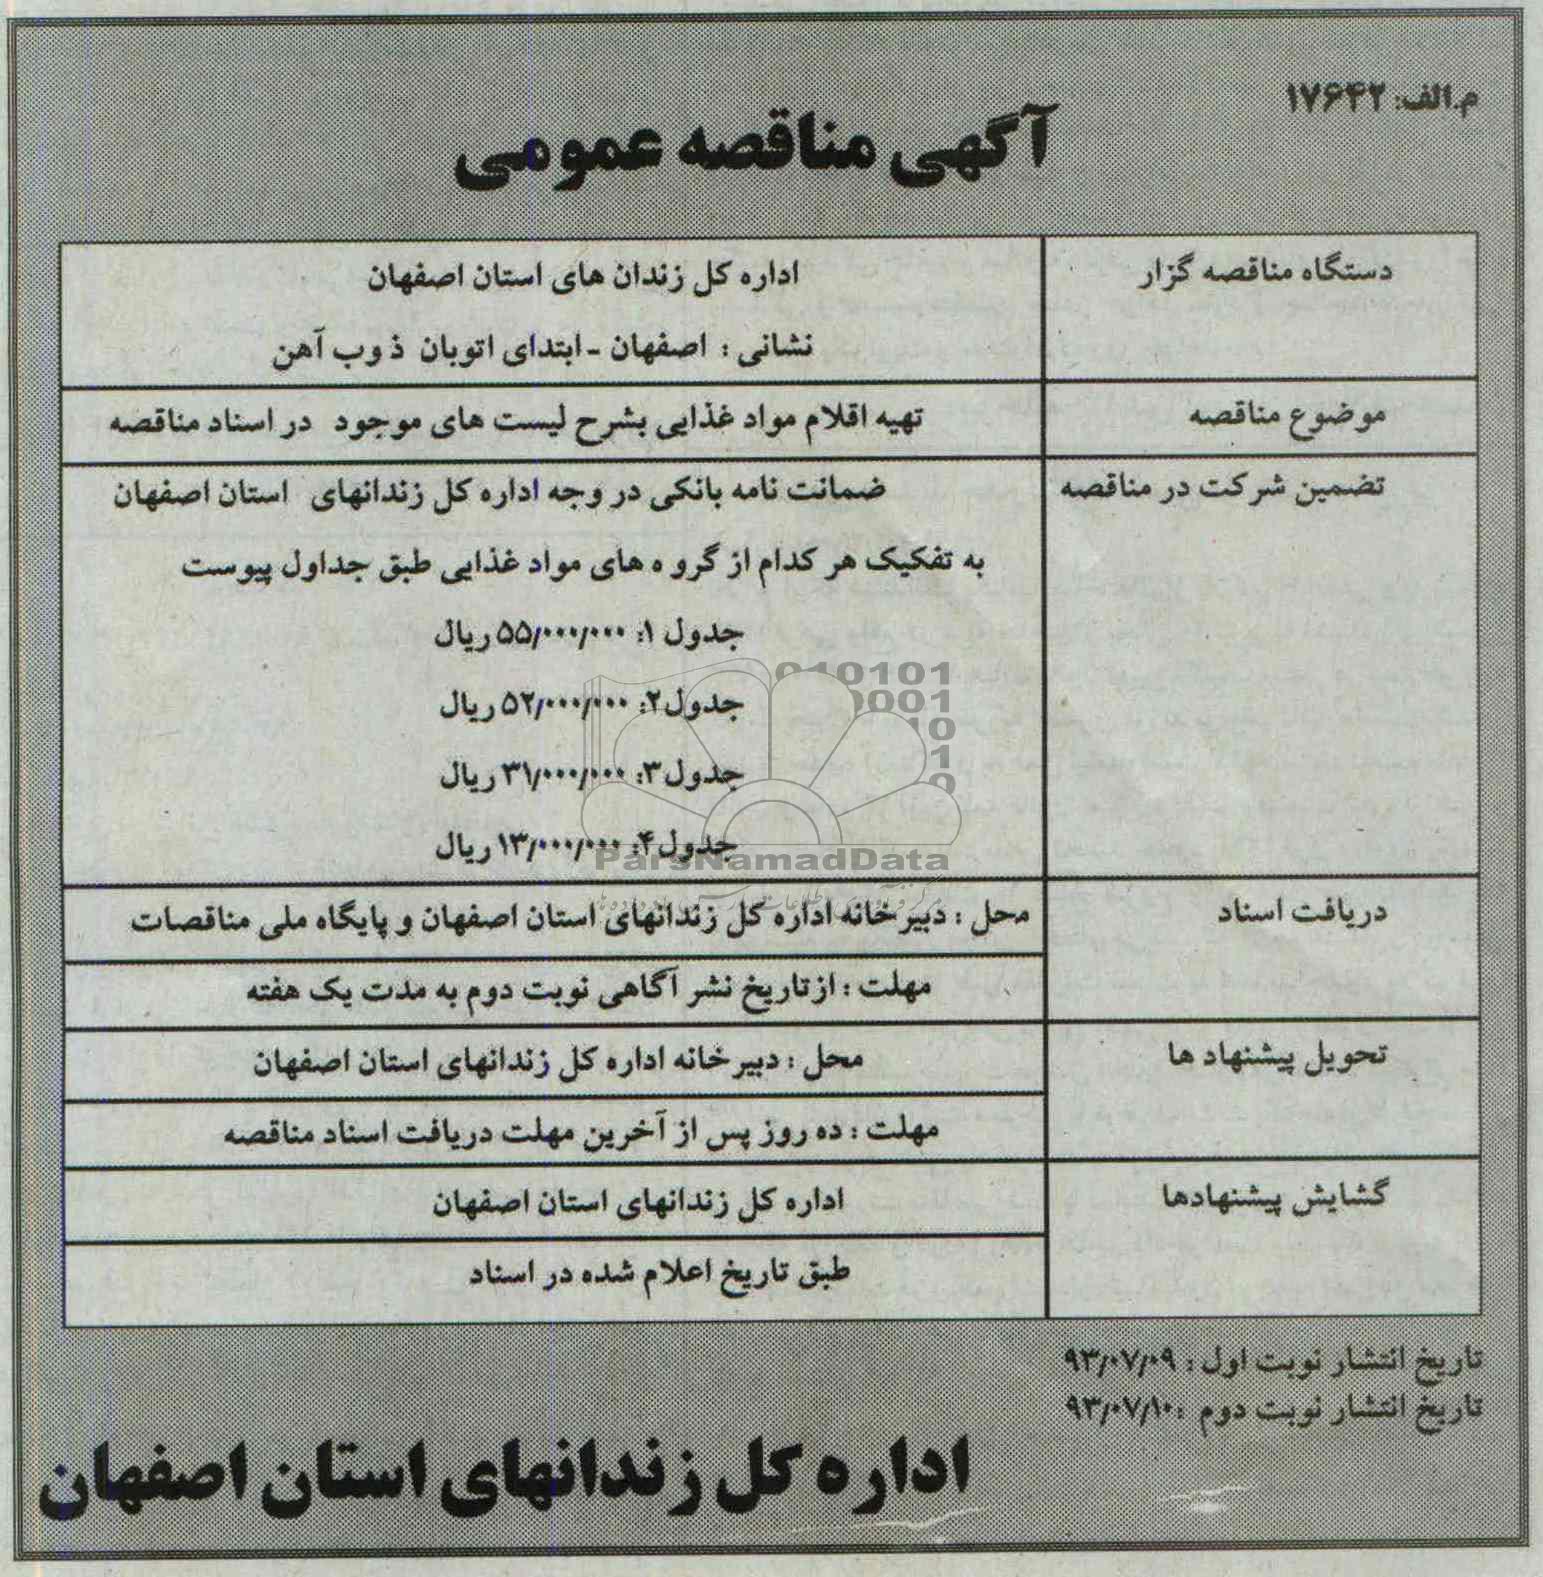 م.الف: ۱۷۶۴۲
آگهی مناقصه عمومی
دستگاه مناقصه گزار
اداره کل زندان های استان اصفهان
نشانی : اصفهان -ابتدای اتوبان ذوب آهن
موضوع مناقصه
تهیه اقلام مواد غذایی بشرح لیست های موجود در اسناد مناقصه
تضمین شرکت در مناقصه
ضمانت نامه بانکی در وجه اداره کل زندانهای استان اصفهان
به تفکیک هر کدام از گروه های مواد غذایی طبق جداول پیوست
جدول ۱: ۵۵/۰۰۰/۰۰۰ ریال
جدول۲: ۵۲/۰۰۰/۰۰۰ ریال
جدول۳: ۳۱/۰۰۰/۰۰۰ ریال
جدول۴: ۱۳/۰۰۰/۰۰۰ ریال
010101
0001
10
1
0
ParsNamadData
دریافت اسناد
محل : دبیرخانه اداره کل زندانهای استان اصفهان و پایگاه ملی مناقصات
مهلت : از تاریخ نشر آگاهی نوبت دوم به مدت یک هفته
تحویل پیشنهاد ها
محل : دبیرخانه اداره کل زندانهای استان اصفهان
مهلت : ده روز پس از آخرین مهلت دریافت اسناد مناقصه
گشایش پیشنهادها
اداره کل زندانهای استان اصفهان
طبق تاریخ اعلام شده در اسناد
تاریخ انتشار نوبت اول : ۹۳/۰۷/۰۹
تاریخ انتشار نوبت دوم :۹۳/۰۷/۱۰
اداره کل زندانهای استان اصفهان